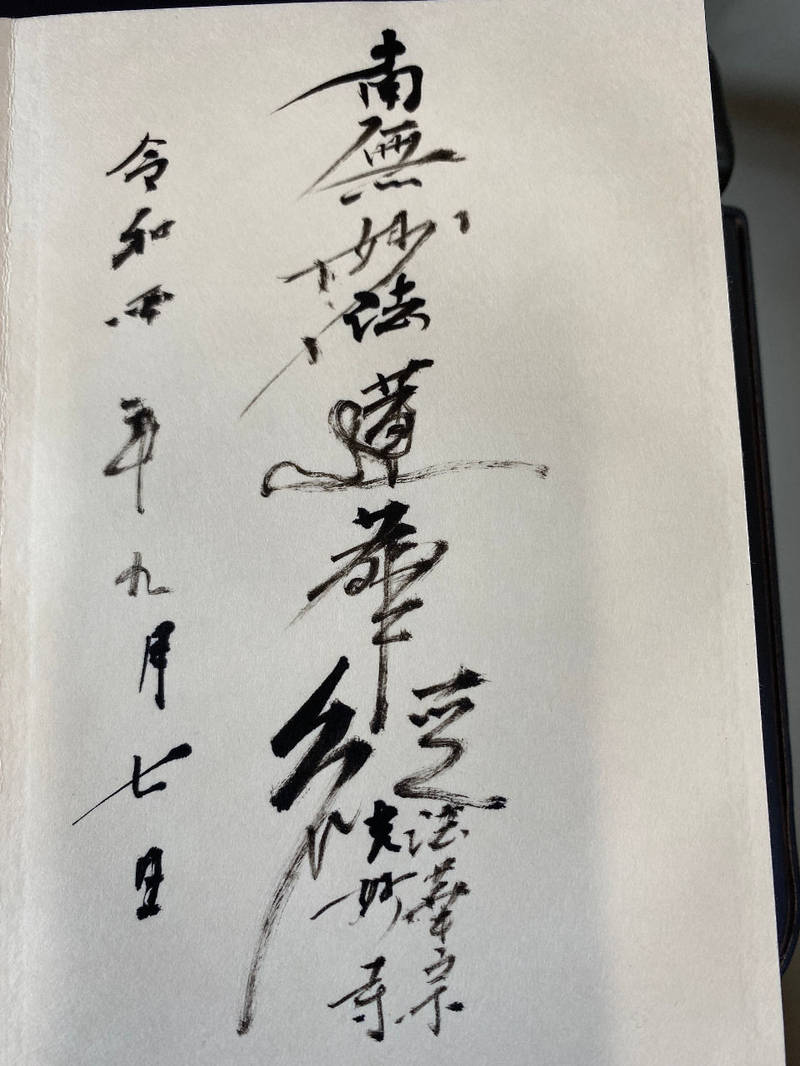 南無妙法蓮華經
法華宗
妙寺
令和四年九月七日